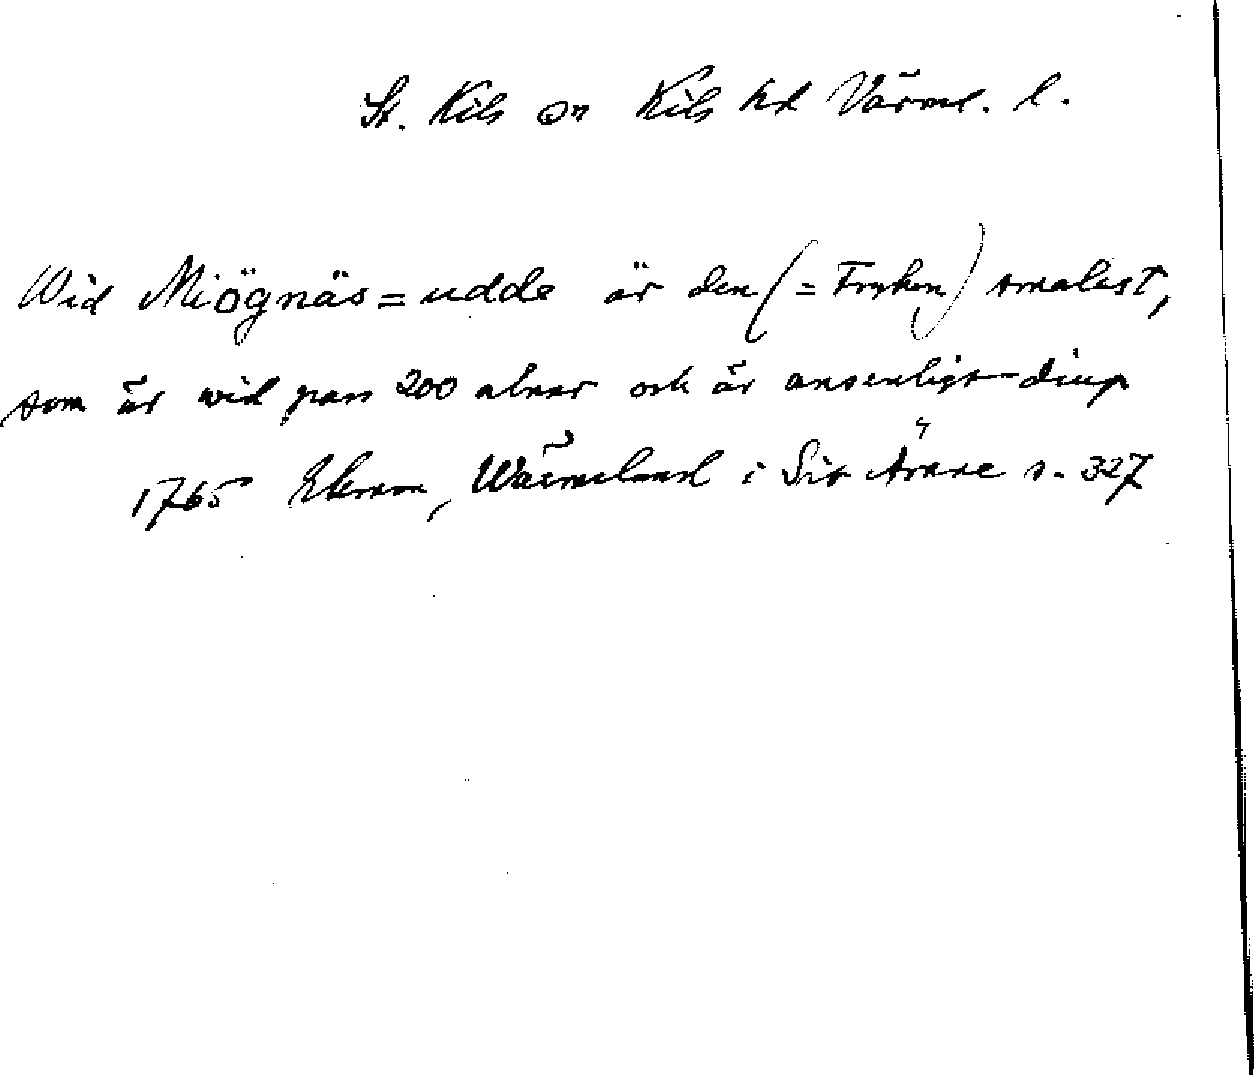 St. Kils sn Kils hd Värml. l.
Wid Miögnäs=udde är den (= Fryken) smalest,
som är wid pass 200 alnar och är ansenligt diup
1765 Ekman, Wärmeland i Sit Ämne s. 327